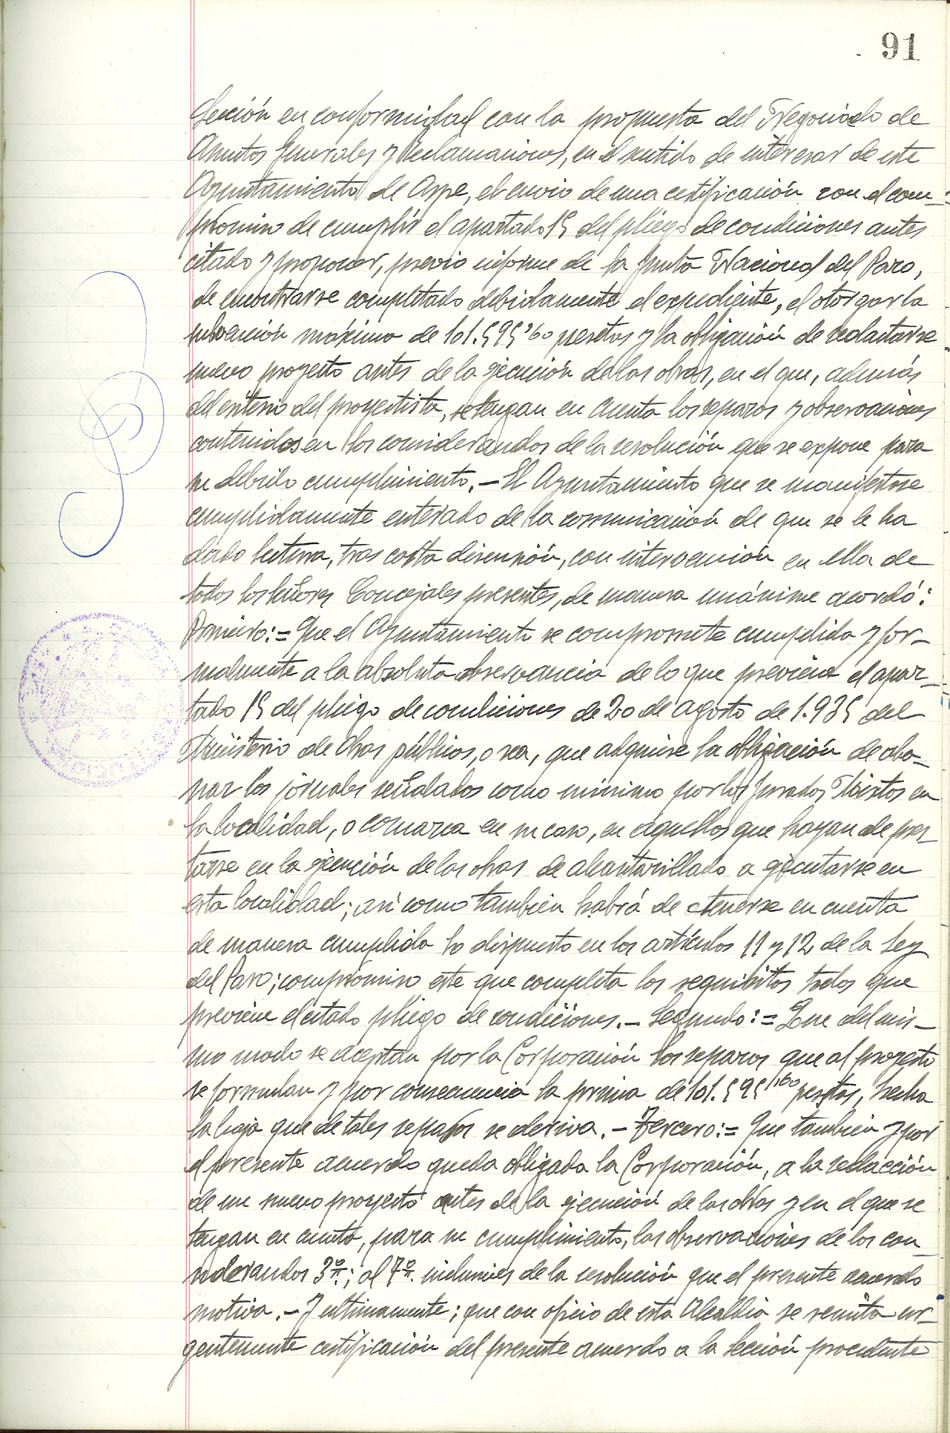 91
Sección en conformidad con la propuesta del Negociado de
Asuntos Generales y Reclamaciones, en el sentido de interesar de este
Ayuntamiento de Aspe, el envío de una certificación con el com-
promiso de cumplir el apartado 15 del pliego de condiciones antes
citado y proponer, previo informe de la Junta Nacional del Paro,
de encontrarse completado debidamente el expediente, el otorgar la
subvención máxima de 101.595'60 pesetas y la obligación de redactarse
nuevo proyecto antes de la ejecución de las obras, en el que, además
del criterio del proyectista, se tengan en cuenta los reparos y observaciones
contenidos en los considerandos de la resolución que se expone para
su debido cumplimiento.- El Ayuntamiento que se manifestose
cumplidamente enterado de la comunicación de que se le ha
dado lectura, tras corta discusión, con intervención en ella de
todos los señores Concejales presentes, de manera unánime acordó:
Primero:= Que el Ayuntamiento se compromete cumplida y for-
malmente a la absoluta observancia de lo que previene el apar-
tado 15 del pliego de condiciones de 20 de agosto de 1.935 del
Ministerio de Obras públicas, o sea, que adquiere la obligación de abo-
nar los jornales señalados como mínimo por los Jurados Mixtos en
la localidad, o comarca en su caso, en aquellos que hayan de pres-
tarse en la ejecución de las obras de alcantarillado a ejecutarse en
esta localidad; así como también habrá de tenerse en cuenta
de manera cumplida lo dispuesto en los artículos 11 y 12 de la Ley
del Paro; compromiso este que completa los requisitos todos que
previene el citado pliego de condiciones.- Segundo:= Que del mis-
mo modo se aceptan por la Corporación los reparos que al proyecto
se formulan y por consecuencia la prima de 101.595'60 pesetas, hecha
la baja que de tales reparos se deriva.- Tercero:= Que también y por
el presente acuerdo queda obligada la Corporación, a la redacción
de un nuevo proyecto antes de la ejecución de las obras y en el que se
tengan en cuenta, para su cumplimiento, las observaciones de los con-
siderandos 3º; al 7º. inclusives de la resolución que el presente acuerdo
motiva.- Y ultimamente; que con oficio de esta Alcaldía se remita ur-
gentemente certificación del presente acuerdo a la sección procedente